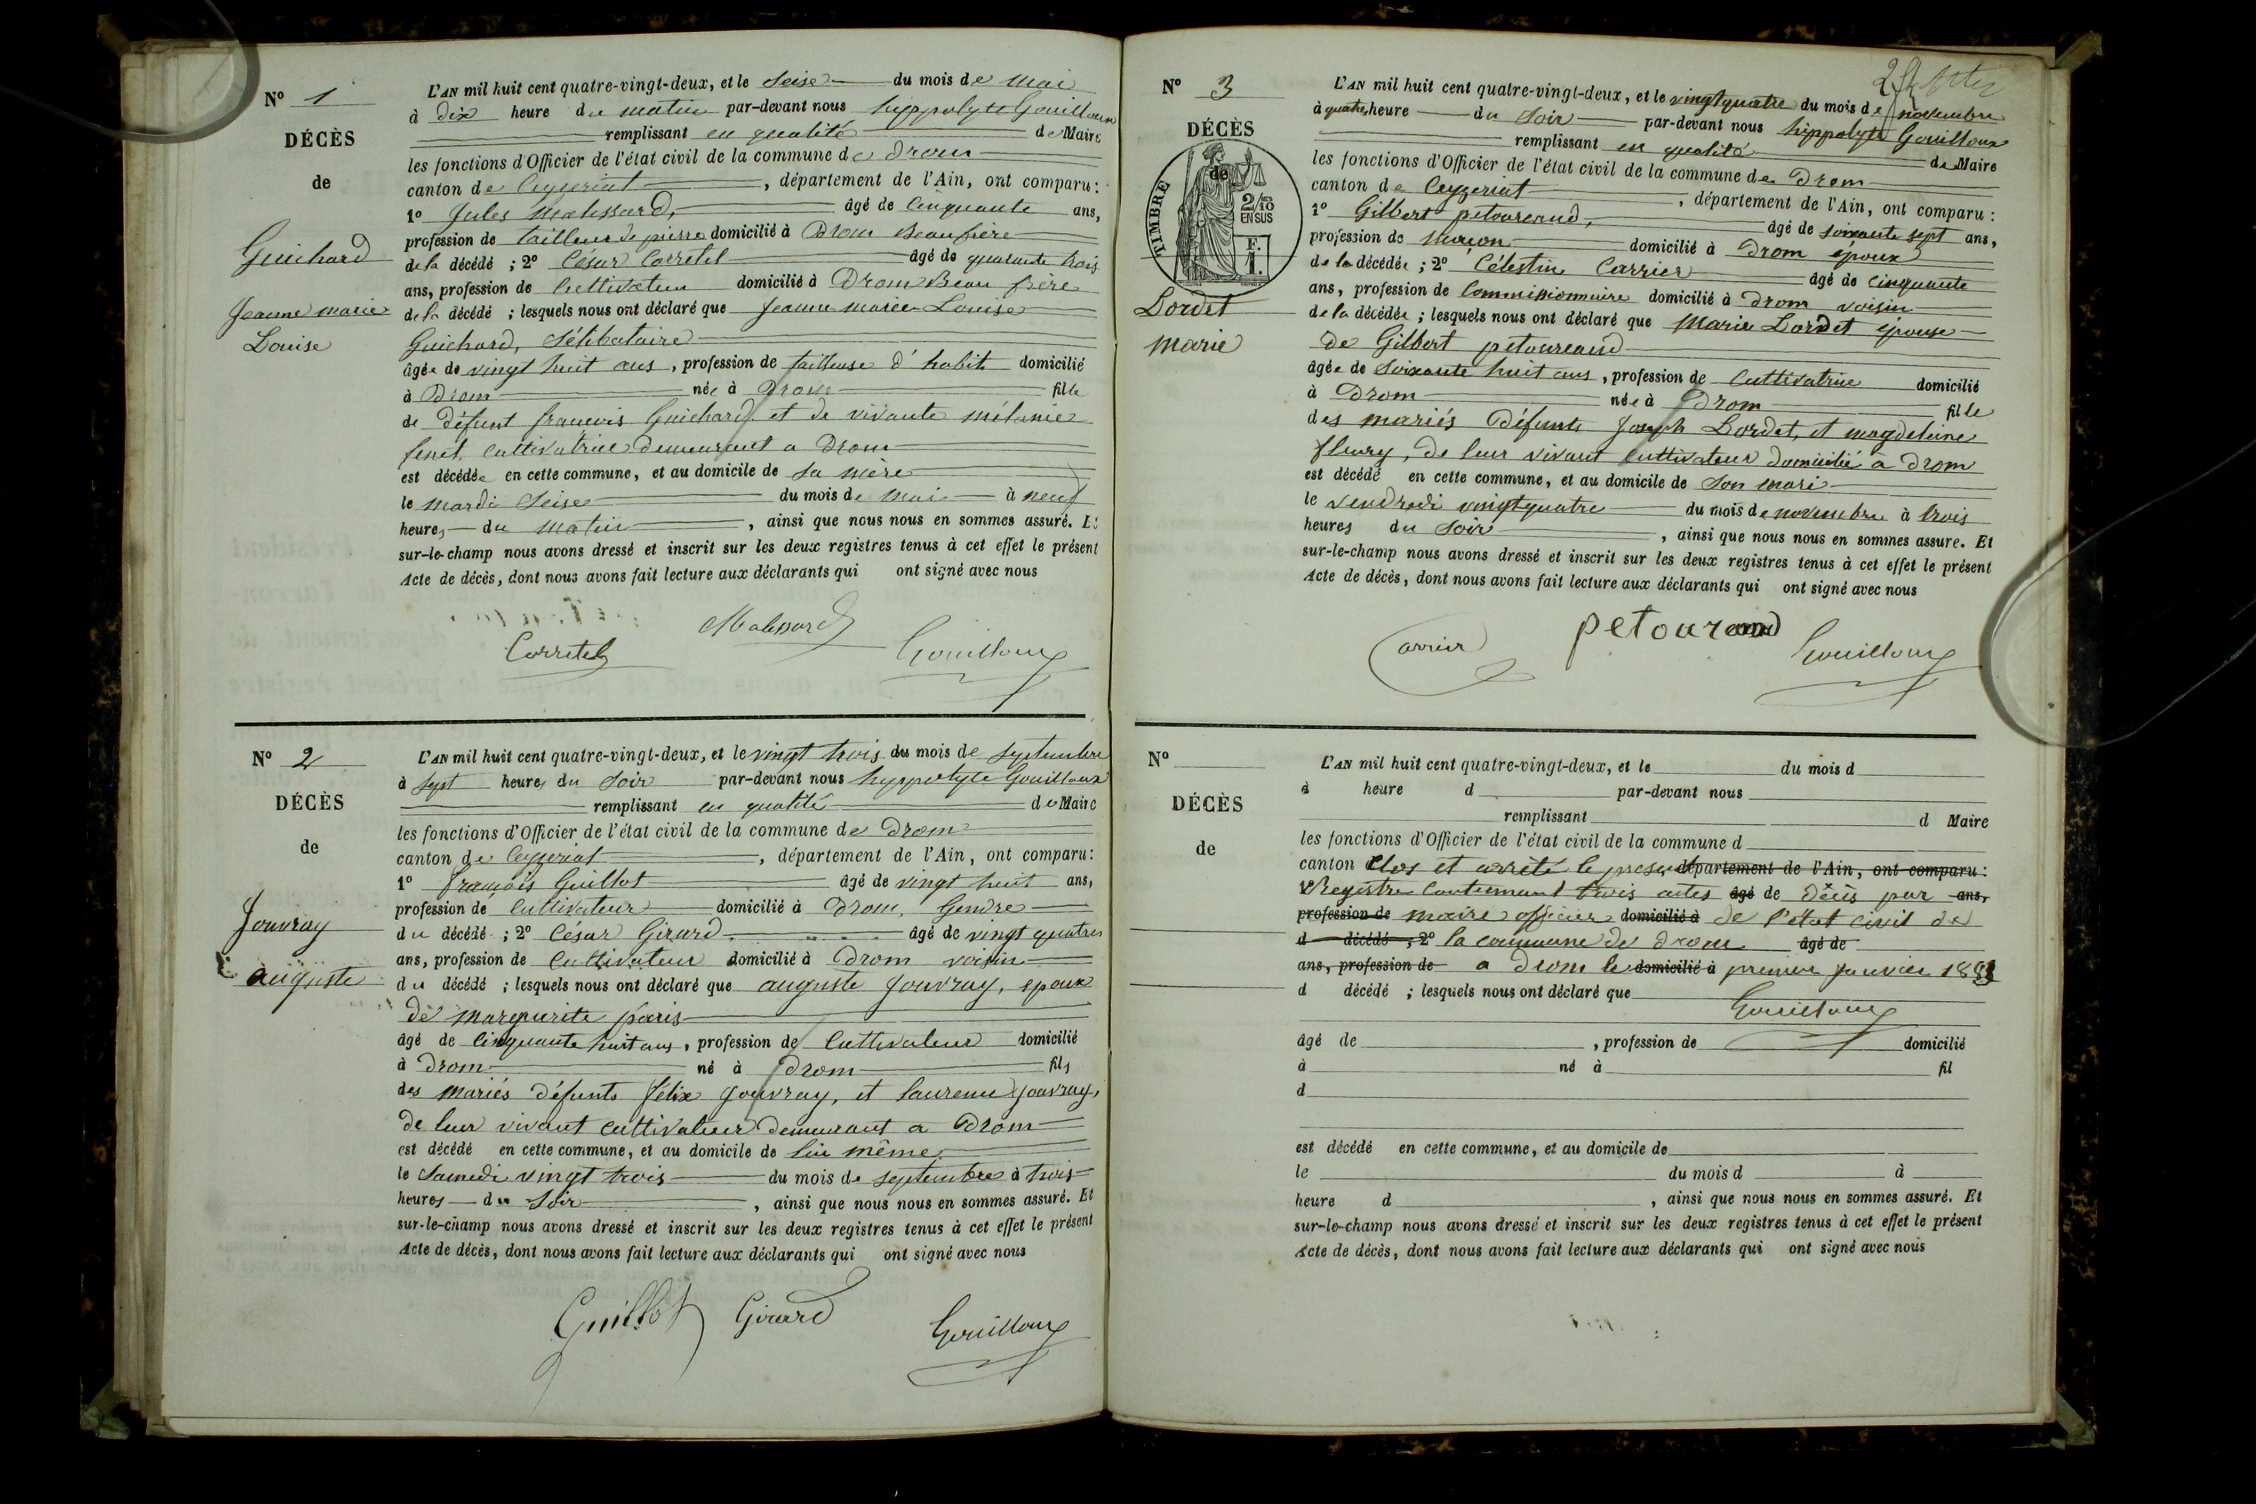 N° 1
DÉCÈS
de
Guichard
Jeanne marie
Louise
L'AN mil huit cent quatre-vingt-deux, et le seise du mois de mai
à dix heure du matin par-devant nous hyppolyte Gouilloux
remplissant en qualité de Maire
les fonctions d'Officier de l'état civil de la commune de drom
canton de Ceyzeriat, département de l'Ain, ont comparu :
1° Jules Malessard, âgé de Cinquante ans,
profession de tailleur de pierre domicilié à Drom Beaufrère
de la décédé ; 2° César Corretel âgé de quarante trois
ans, profession de Cultivateur domicilié à Drom Beau frère
de la décédé ; lesquels nous ont déclaré que Jeanne marie Louise
Guichard, Sélibataire
âgée de vingt huit ans, profession de tailleuse d'habit domicilié
à Drom née à Drom fille
de défunt françois Guichard et de vivante mélanie
cultivatrice demeurant a Drom
est décédée en cette commune, et au domicile de sa mère
le mardi seise du mois de mai à neuf
heures du matin, ainsi que nous nous en sommes assuré. Et
sur-le-champ nous avons dressé et inscrit sur les deux registres tenus à cet effet le présent
Acte de décès, dont nous avons fait lecture aux déclarants qui ont signé avec nous
Corretel Malessard Gouilloux
N° 2
DÉCÈS
de
Jouvray
auguste
L'AN mil huit cent quatre-vingt-deux, et le vingt trois du mois de septembre
à sept heures du soir par-devant nous hyppolyte Gouilloux
remplissant en qualité de Maire
les fonctions d'Officier de l'état civil de la commune de Drom
canton de Ceyzeriat, département de l'Ain, ont comparu :
1° françois Guillot âgé de vingt huit ans,
profession de Cultivateur domicilié à Drom, Gendre
du décédé ; 2° César Girard âgé de vingt quatre
ans, profession de Cultivateur domicilié à Drom voisin
du décédé ; lesquels nous ont déclaré que auguste Jouvray, epoux
de marguerite paris
âgé de Cinquante huit ans, profession de Cultivateur domicilié
à Drom né à Drom fils
des mariés défunts félix Jouvray, et Jouvray,
de leur vivant cultivateur demeurant a Drom
est décédé en cette commune, et au domicile de lui même
le Samedi vingt trois du mois de septembre à trois
heures du Soir, ainsi que nous nous en sommes assuré. Et
sur-le-champ nous avons dressé et inscrit sur les deux registres tenus à cet effet le présent
Acte de décès, dont nous avons fait lecture aux déclarants qui ont signé avec nous
Guillot Girard Gouilloux
N° 3
DÉCÈS
de
TIMBRE
2/10 EN SUS
F. 1.
Lordet
marie
L'AN mil huit cent quatre-vingt-deux, et le vingtquatre du mois de novembre
à quatre heure du soir par-devant nous hippolyte Gouilloux
remplissant en qualité de Maire
les fonctions d'Officier de l'état civil de la commune de Drom
canton de Ceyzeriat, département de l'Ain, ont comparu :
1° Gilbert petoureaud, âgé de soixante sept ans,
profession de Maçon domicilié à Drom époux
de la décédée ; 2° Célestin Carrier âgé de cinquante
ans, profession de Commissionnaire domicilié à Drom voisin
de la décédée ; lesquels nous ont déclaré que Marie Lordet épouse
de Gilbert petoureaud
âgée de Soixante huit ans, profession de Cultivatrice domicilié
à Drom née à Drom fille
des mariés Défunts Joseph Lordet, et magdeleine
fleury, de leur vivant Cultivateur domicilié à Drom
est décédé en cette commune, et au domicile de Son mari
le vendredi vingtquatre du mois de novembre à trois
heures du Soir, ainsi que nous nous en sommes assuré. Et
sur-le-champ nous avons dressé et inscrit sur les deux registres tenus à cet effet le présent
Acte de décès, dont nous avons fait lecture aux déclarants qui ont signé avec nous
Carrier petouraud Gouilloux
N°
DÉCÈS
de
L'AN mil huit cent quatre-vingt-deux, et le du mois d
à heure d par-devant nous
remplissant d Maire
les fonctions d'Officier de l'état civil de la commune d
canton Clos et arrêté le present département de l'Ain, ont comparu :
Registre Contenant trois actes âgé de décès par ans,
profession de maire officier domicilié à de l'état civil de
d décédé ; 2° la commune de Drom âgé de
ans, profession de a Drom le domicilié à premier Janvier 1883
d décédé ; lesquels nous ont déclaré que
Gouilloux
âgé de , profession de domicilié
à né à fil
d
est décédé en cette commune, et au domicile de
le du mois d à
heure d , ainsi que nous nous en sommes assuré. Et
sur-le-champ nous avons dressé et inscrit sur les deux registres tenus à cet effet le présent
Acte de décès, dont nous avons fait lecture aux déclarants qui ont signé avec nous